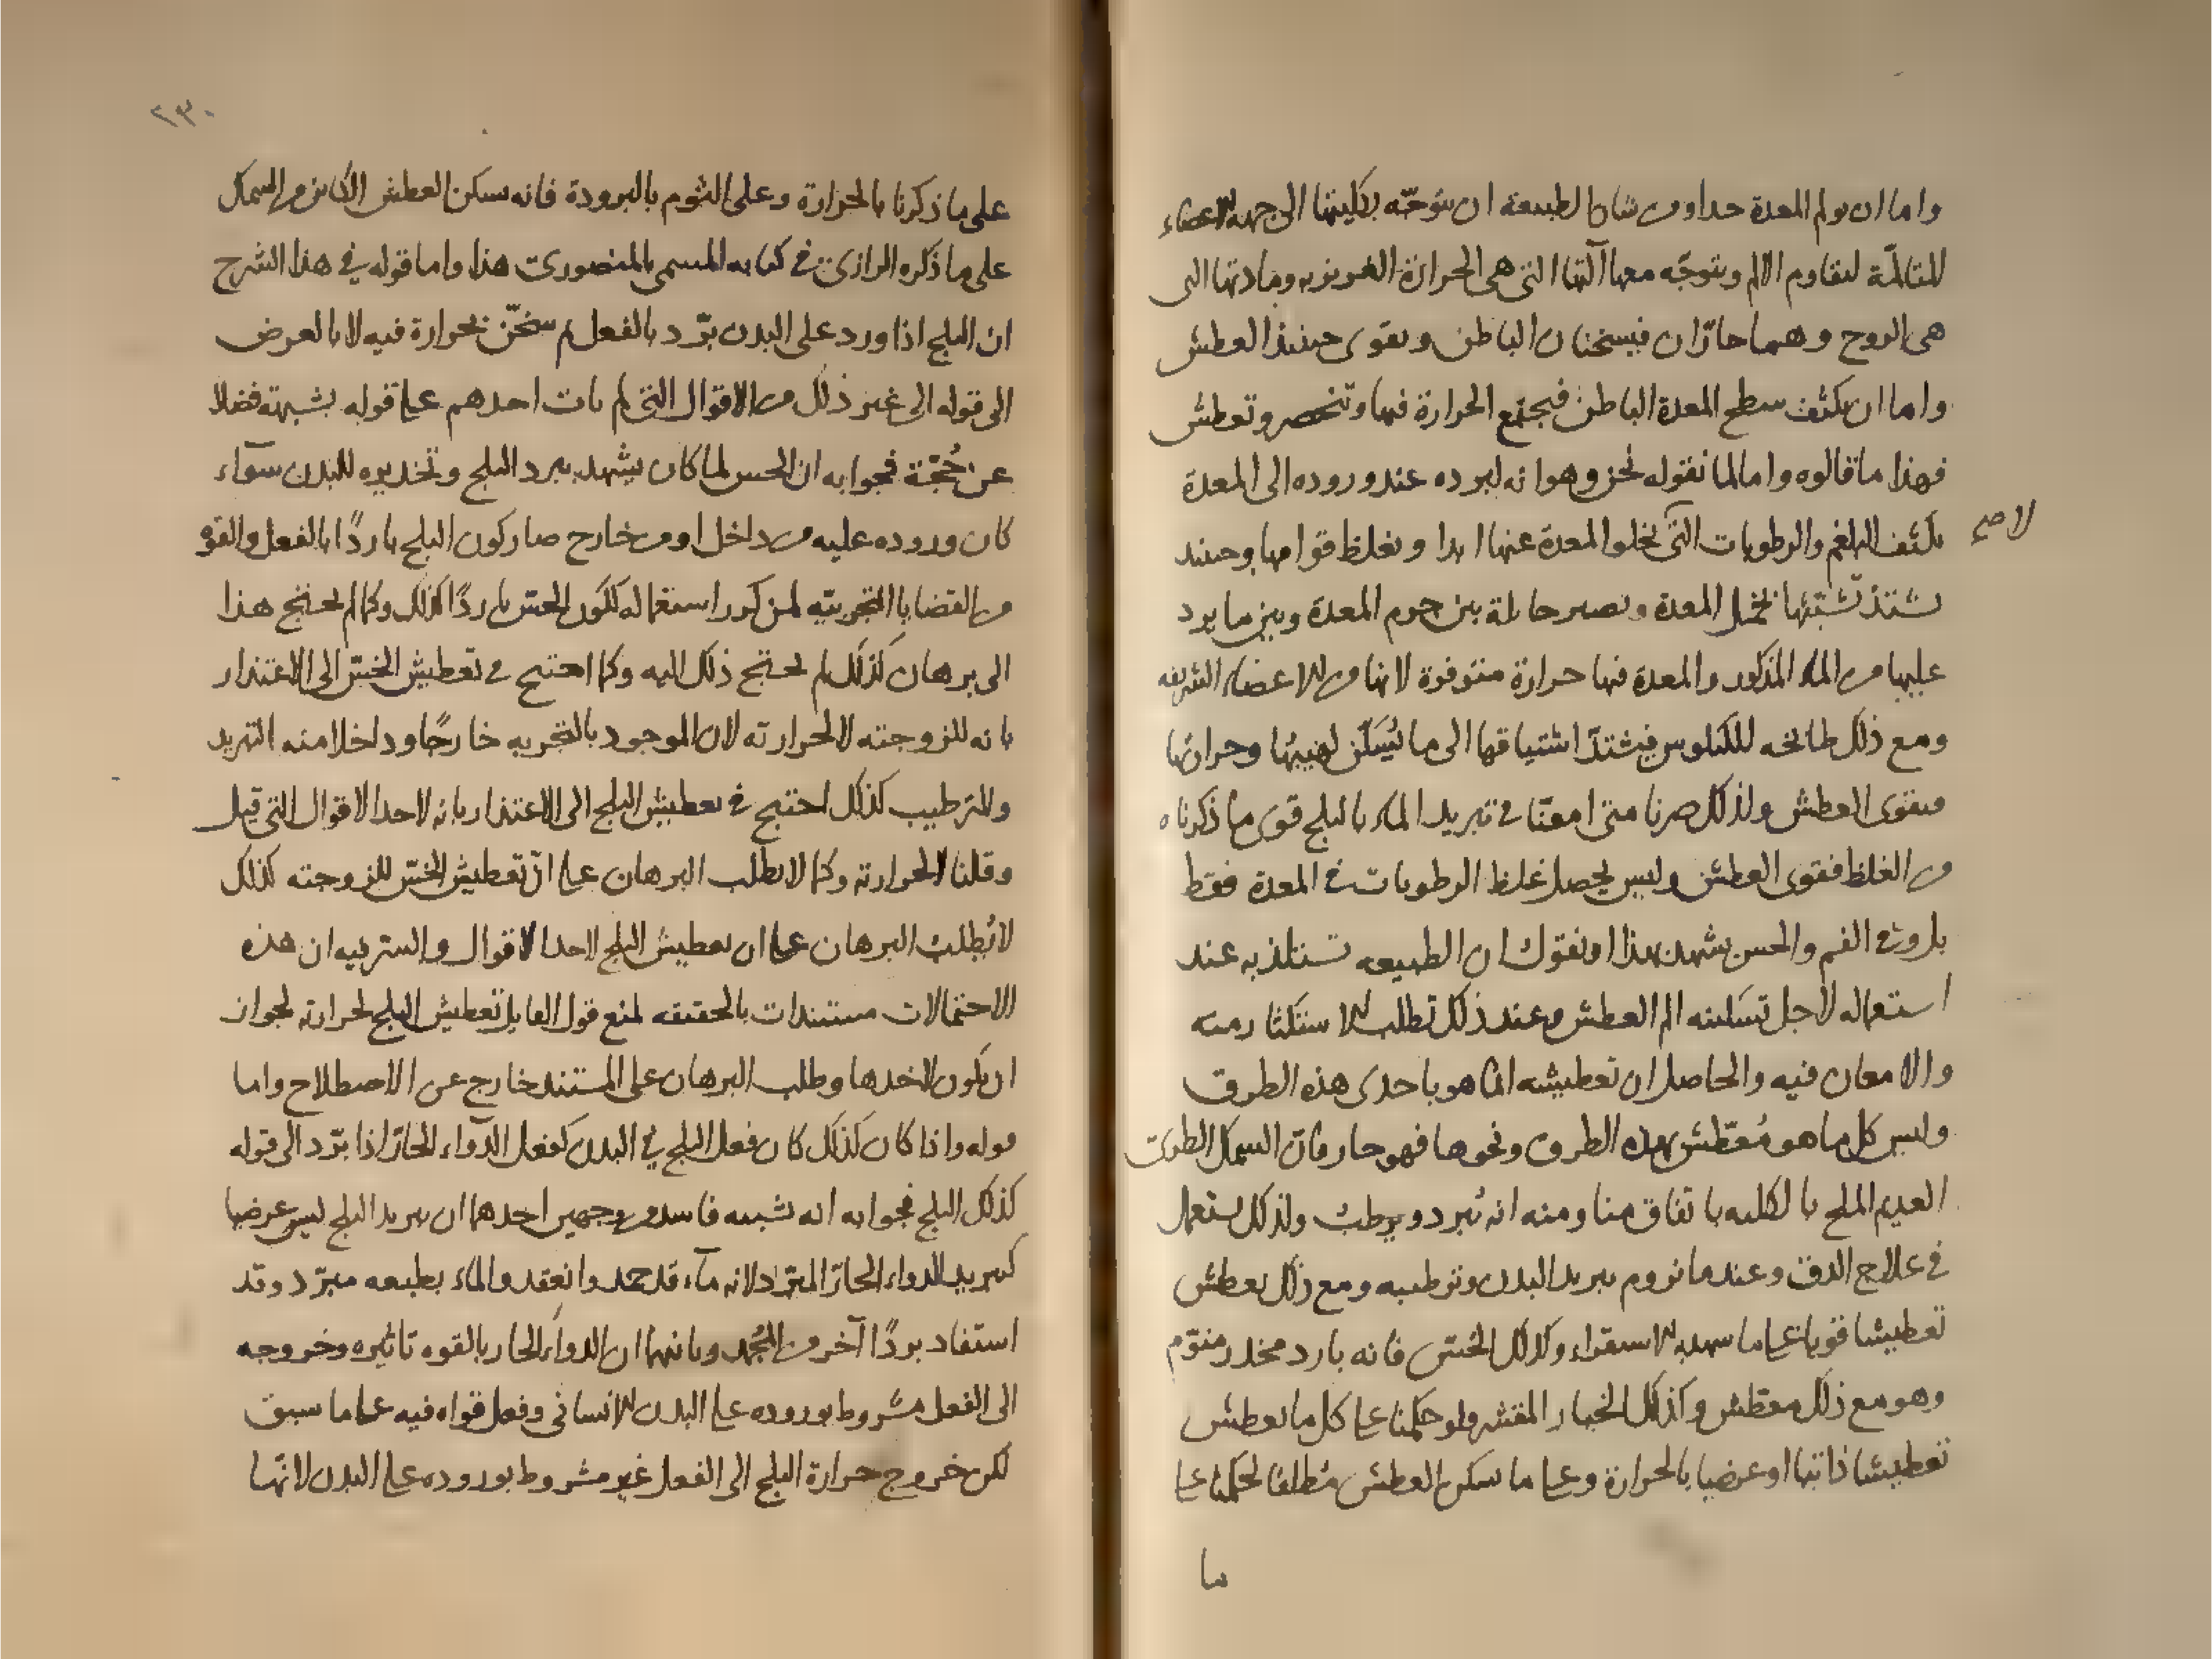 واما ان يولم المعدة جدا ومن شان الطبيعة ان تتوجّه بكليتها الى جهة الاعضاء
المتالمّة لتقاوم الالم ويتوجّه معها آلتها التى هى الحرارة الغريزيه ومادتها التى
هى الروح وهما حارّان فيسخنان الباطن ويقوى حينئذ العطش
واما ان يكثف سطح المعدة الباطن فيجتمع الحرارة فيها وتنحصر وتعطش
فهذا ما قالوه واما ما نقوله نحن وهو انه لبرده عند وروده الى المعدة
لاصح
يكثف البلغم والرطوبات التى تخلوا المعدة عنها ابدا ويغلظ قوامها وحينئذ
يشتدّ تشبّثها بخمل المعدة وتصير حايلة بين جرم المعدة وبين ما يرد
عليها من الماء المذكور والمعدة فيها حرارة متوفرة لانها من الاعضاء الشريفه
ومع ذلك طابخه للكيلوس فيشتدّ اشتياقها الى ما يُسَكّن لهيبها وحرارتها
فيقوى العطش ولذلك صرنا متى امعنّا فى تبريد الماء بالثلج قوى ما ذكرناه
من الغلظ فقوى العطش وليس يحصل غلظ الرطوبات فى المعدة فقط
بل وفى الفم والحس يشهد بهذا او نقول ان الطبيعه تستلذ به عند
استعماله لاجل تسكينه الم العطش وعند ذلك تطلب الاستكثار منه
والامعان فيه والحاصل ان تعطيشه انما هو باحدى هذه الطرق
وليس كل ما هو مُعطّش بهذه الطرق ونحوها فهو حار فان السمك الطرى
العديم الملح بالكليه باتفاق منا ومنه انه يُبرد ويرطب ولذلك يستعمل
فى علاج الدق وعندما نروم تبريد البدن وترطيبه ومع ذلك يعطش
تعطيشا قويا على ما يشهد به الاستقراء وكذلك الخس فانه بارد مخدر منوّم
وهو مع ذلك معطّش وكذلك الخيار المقشر ولو حكمنا على كل ما يعطش
تعطيشا ذاتيا او عرضيا بالحرارة وعلى ما سكن العطش مُطلقا لحكمنا على
ما
٢٣٠
على ما ذكرنا بالحرارة وعلى الثوم بالبرودة فانه سكن العطش الكاين من السمك
على ما ذكره الرازى فى كتابه المسمى بالمنصورى هذا واما قوله فى هذا الشرح
ان الثلج اذا ورد على البدن برّد بالفعل ثم سخّن بحرارة فيه لا بالعرض
الى قوله الى غير ذلك من الاقوال التى لم يات احدهم على قوله بشبهة فضلا
عن حُجّة فجوابه ان الحس لما كان يشهد ببرد الثلج وتخديره للبدن سوآء
كان وروده عليه من داخل او من خارج صار كون الثلج باردًا بالفعل والقوه
من القضايا التجربيّه لمن كرر استعماله ككون الخس باردًا كذلك وكما لم يحتج هذا
الى برهان كذلك لم يحتج ذلك اليه وكما احتيج فى تعطيش الخسّ الى الاعتذار
بانه للزوجته لا لحرارته لان الموجود بالتجربه خارجًا وداخلا منه التبريد
والترطيب كذلك احتيج فى تعطيش الثلج الى الاعتذار بانه لاحد الاقوال التى قيل
وقلنا لا لحرارته وكما لا يطلب البرهان على انّ تعطيش الخسّ للزوجته كذلك
لا يُطلب البرهان على ان تعطيش الثلج لاحد الاقوال والسر فيه ان هذه
الاحتمالات مستندات بالحقيقه لمنع قول القايل تعطيش الثلج لحرارته لجواز
ان يكون لاحدها وطلب البرهان على المستند خارج عن الاصطلاح واما
قوله واذا كان كذلك كان فعل الثلج فى البدن كفعل الدّوآء الحارّ اذا برّد الى قوله
كذلك الثلج فجوابه انه تشبيه فاسد من وجهين احدهما ان تبريد الثلج ليس عرضيا
كتبريد الدواء الحارّ المبرّد لانه مآء قد جمد وانعقد والماء بطبيعه مبرّد وقد
استفاد بردًا آخر من المُجمد وثانيهما ان الدواء الحار بالقوه تاثيره وخروجه
الى الفعل مشروط بوروده على البدن الانسانى وفعل قواه فيه على ما سبق
لكن خروج حرارة الثلج الى الفعل غير مشروط بوروده على البدن لانها